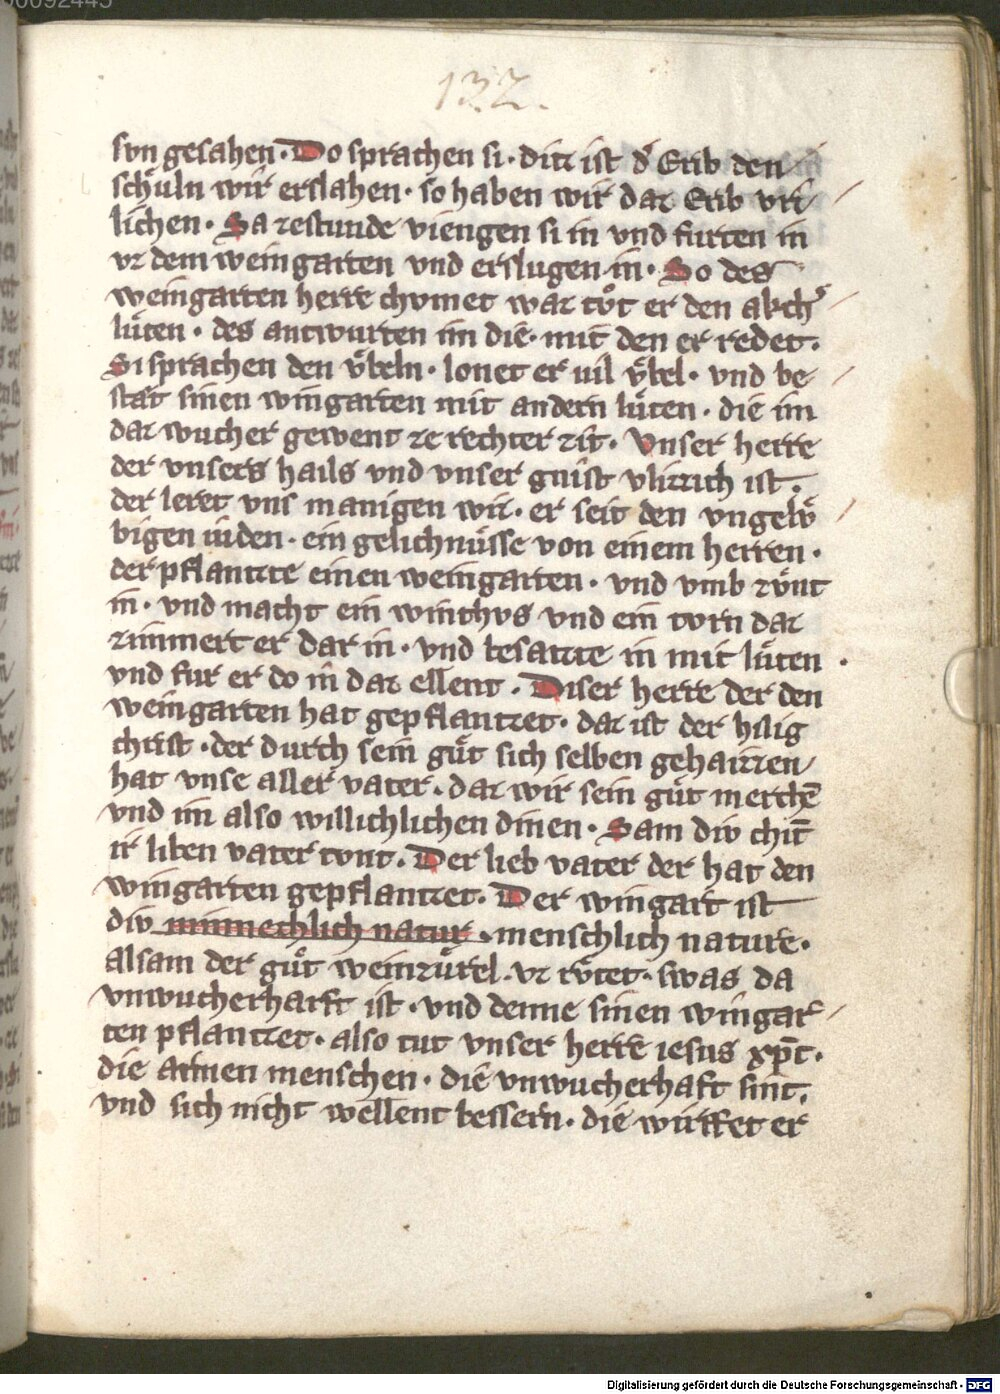 132.
svn gesahen. Do sprachen si. ditz ist d̾ Erib den
schůln wir erslahen. so haben wir daz Erib vri
lichen. Sa zestunde viengen si in vnd furten in
vz dem weingarten vnd erslugen in. So des
weingarten herre chvmet waz tůt er den akch̾
lůten. des antwurten im die. mit den er redet.
Si sprachen den vͤbeln. lonet er uil vͤbel. vnd be
stat sinen wingarten mit andern lůten. die im
daz wucher gewent ze rechter zit. Vnser herre
der vnsers hails vnd vnser gnist vlizzich ist.
der leret vns manigen wis. er seit den vngelo
bigen iuden. ein gelichnůsse von einem herren.
der pflantzte einen weingarten. vnd vmb zvͤnt
in. vnd macht ein winthvs vnd ein tvrn daz
zimmert er dar in. vnd besatzte in mit lůten.
vnd fur er do in daz ellent. Diser herre der den
weingarten hat gepflantzet. daz ist der hilig
christ. der durch sein gůt sich selben gehaizzen
hat vnse aller vater. daz wir sein gůt merchē
vnd im also willichlichen dinen. Sam div chīt
ir liben vater tvnt. Der lieb vater der hat den
wingarten gepflantzet. Der wingart ist
div minnechlich natur. menschlich nature.
alsam der gůt weinzůrel. vz rvͤtet. swas da
vnwucherhaft ist. vnd denne sinen wingar
ten pflantzet. also tut vnser herre iesus xp̄c.
die armen menschen. die vnwucherhaft sint.
vnd sich nicht wellent bessern. die wirffet er
Digitalisierung gefördert durch die Deutsche Forschungsgemeinschaft - DFG